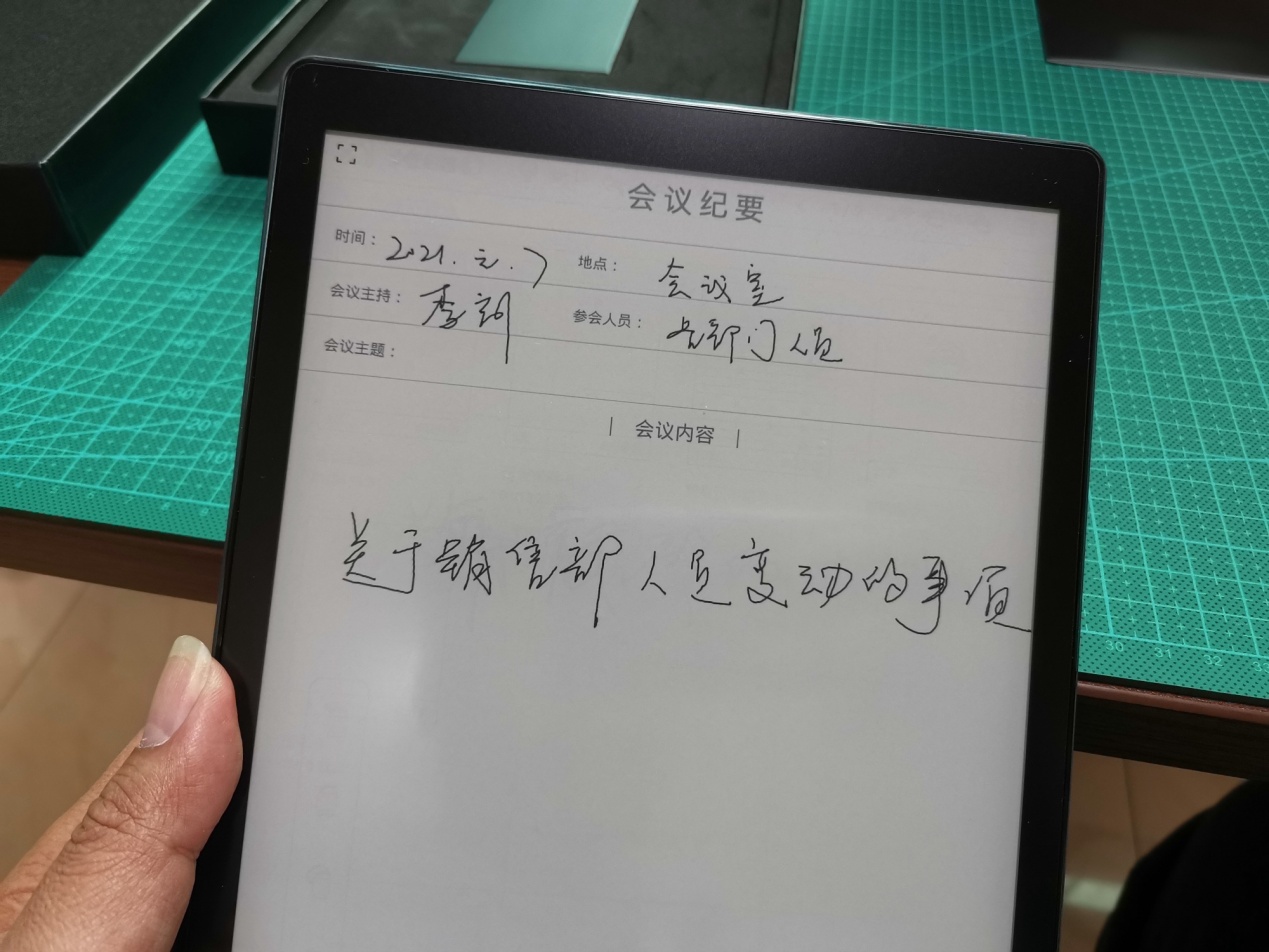 会议纪要
时间: 2021.元.7 地点: 会议室
会议主持: 李 参会人员: 各部门人员
会议主题:
| 会议内容 |
关于销售部人员变动的事宜
30 31 32 33